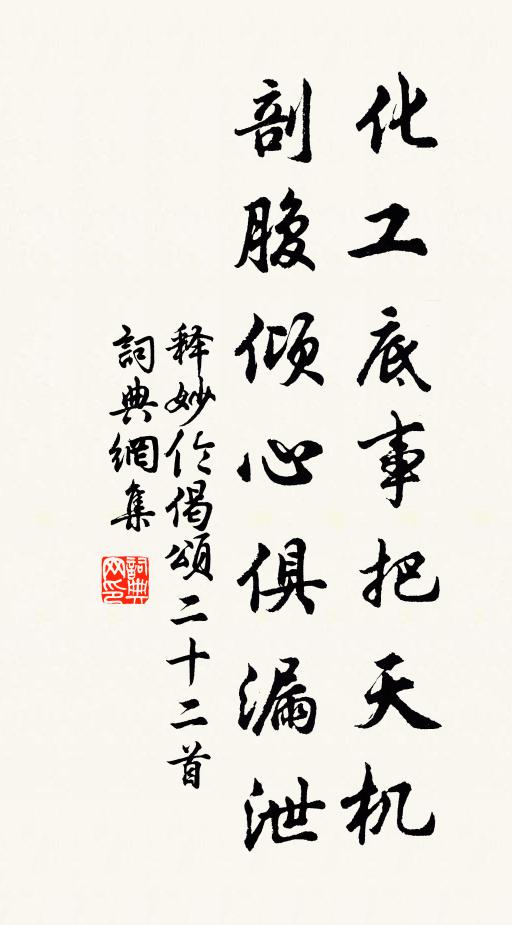 化工底事把天机
剖腹倾心俱漏泄
释妙伦偈颂二十二首
詞典網集
詞典网印